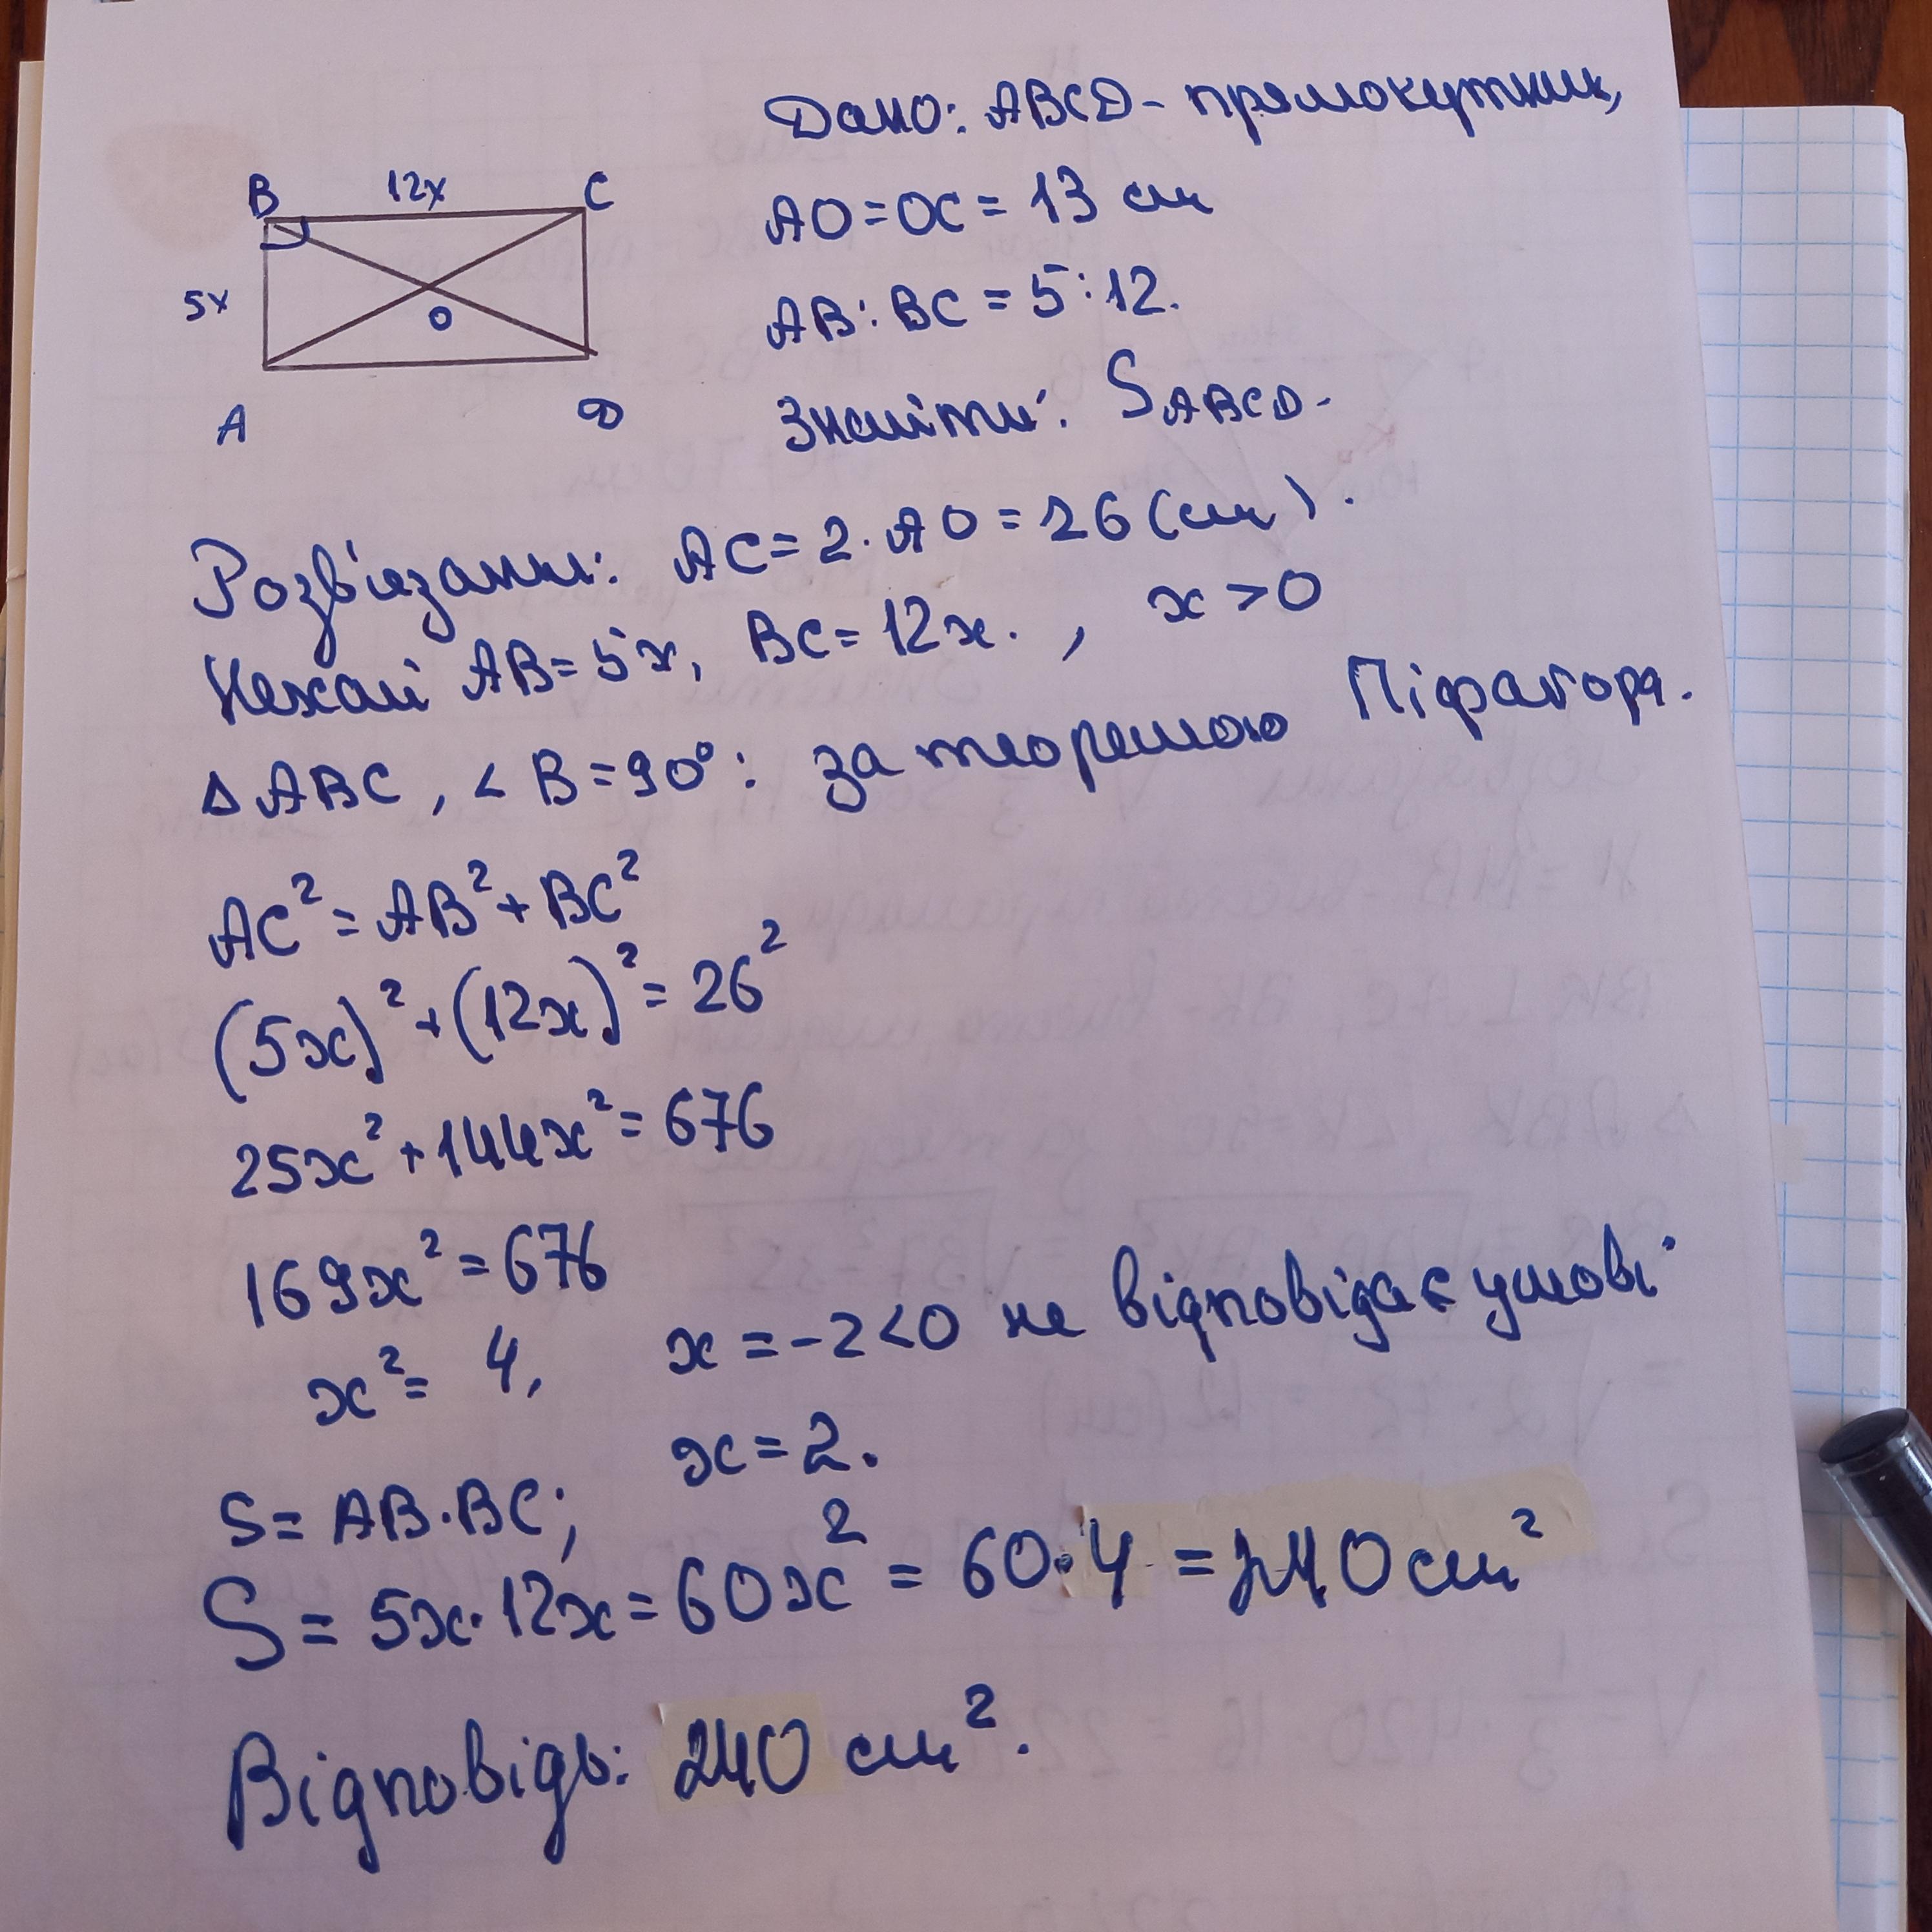 B 12x C
5x
O
A D
Дано: ABCD - прямокутник,
AO = OC = 13 см
AB : BC = 5 : 12.
Знайти: S ABCD.
Розв'язання: AC = 2 · AO = 26 (см).
Нехай AB = 5x, BC = 12x. , x > 0
Δ ABC, ∠ B = 90° : за теоремою Піфагора.
AC² = AB² + BC²
(5x)² + (12x)² = 26²
25x² + 144x² = 676
169x² = 676
x² = 4, x = -2 < 0 не відповідає умові
x = 2.
S = AB · BC;
S = 5x · 12x = 60x² = 60 · 4 = 240 см²
Відповідь: 240 см².